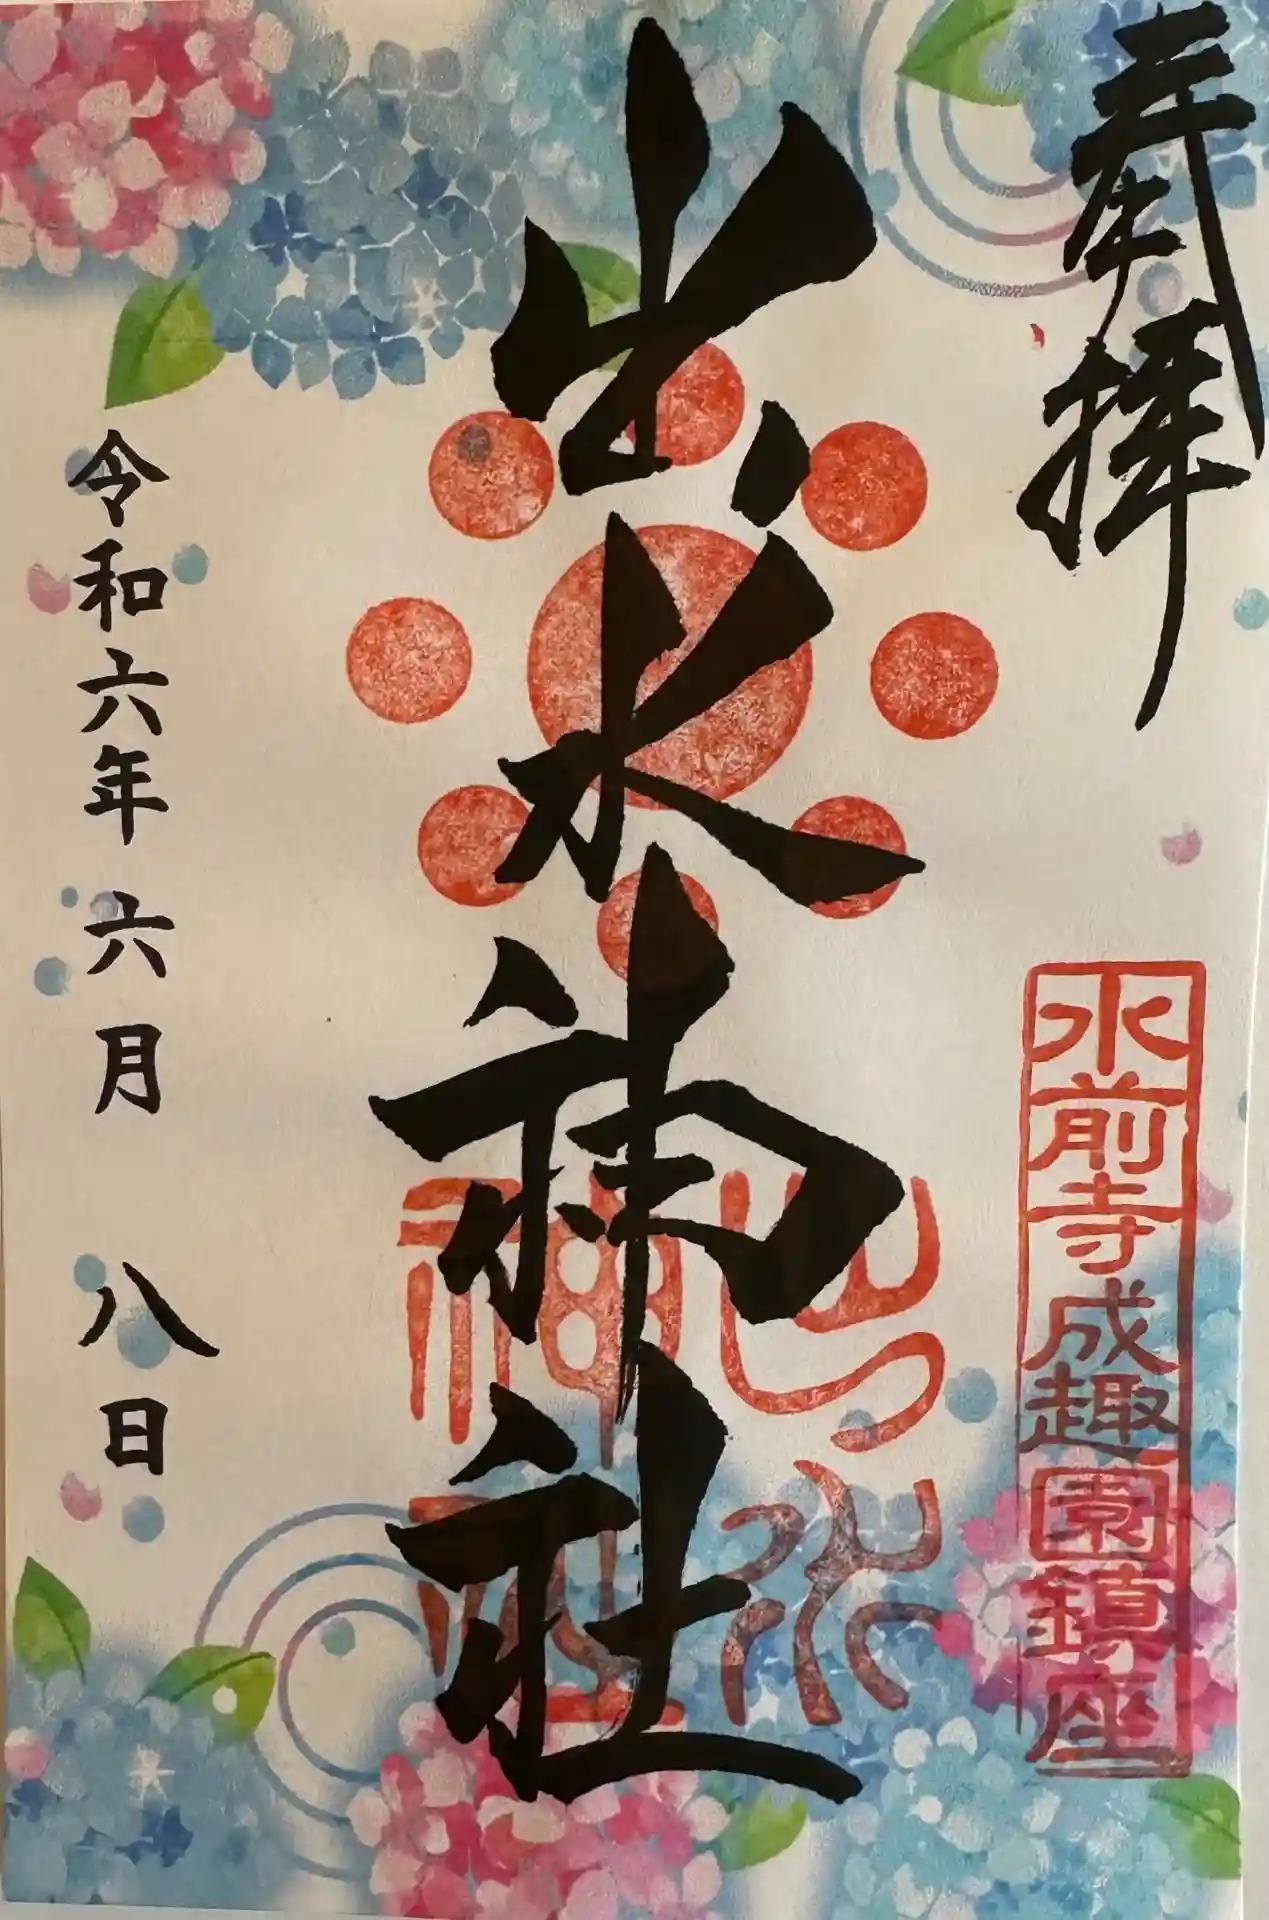 奉拝
水前寺成趣園鎮座
出水神社
出水神社
令和六年 六月 八日